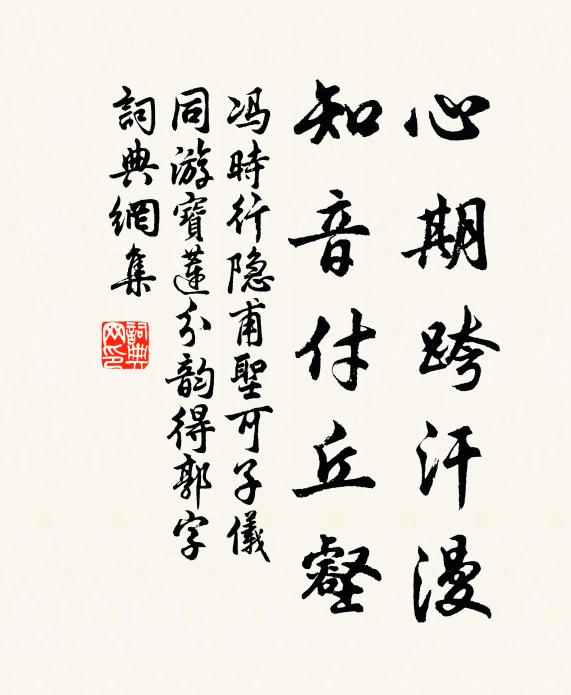 心期跨汗漫
知音付丘壑
冯時行隐甫聖可子儀
同游寶蓮分韵得郭字
詞典網集
詞典网印